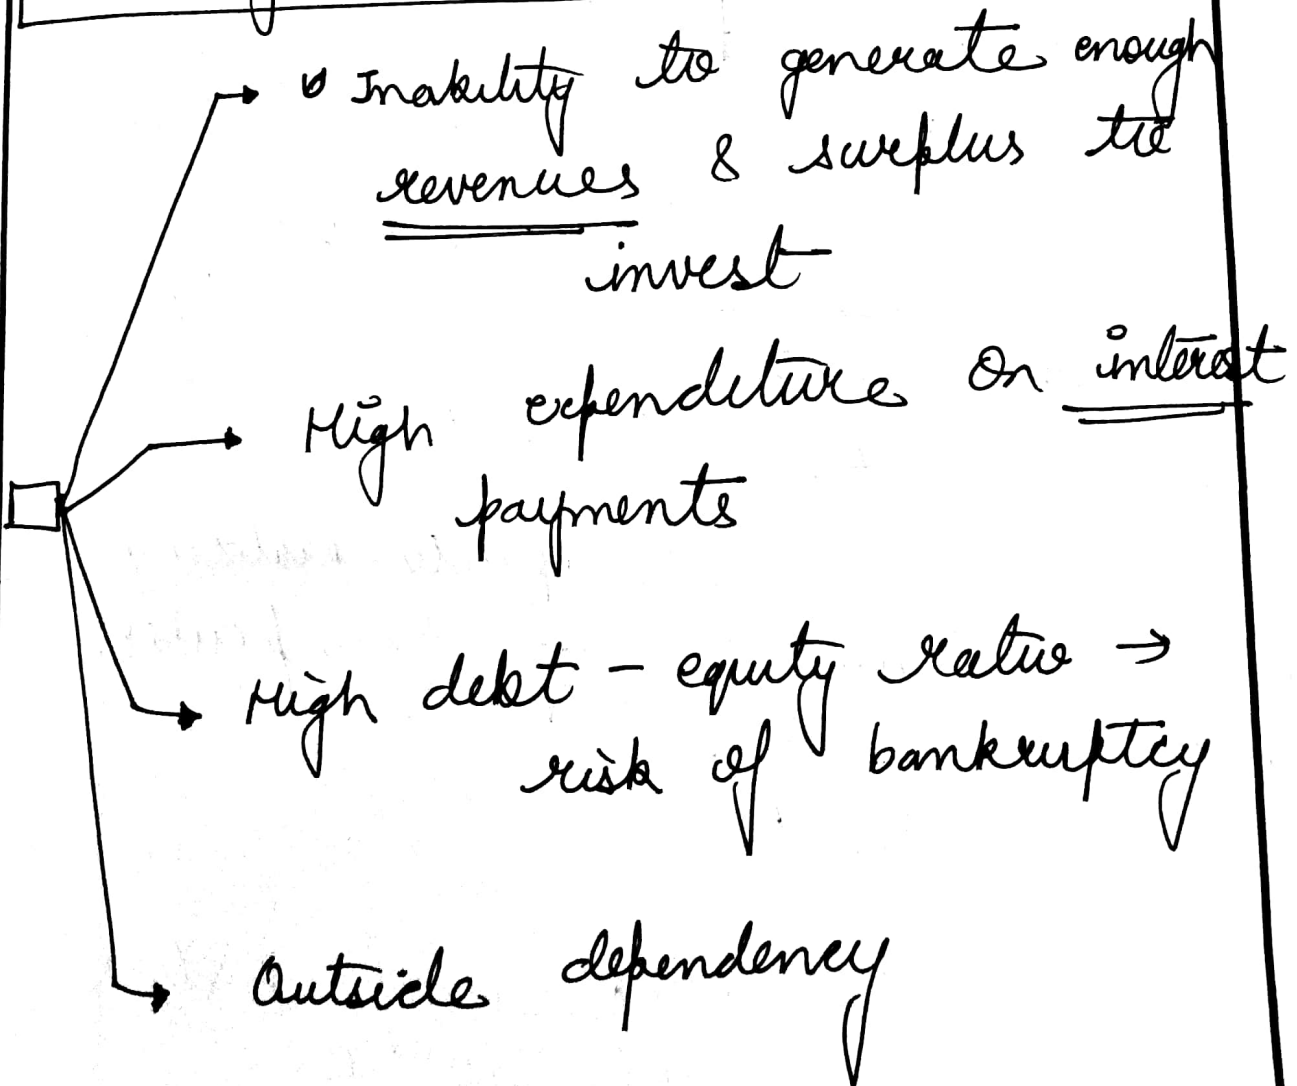 Inability to generate enough
revenues & surplus to
invest
High expenditure on interest
payments
High debt - equity ratio →
risk of bankruptcy
Outside dependency